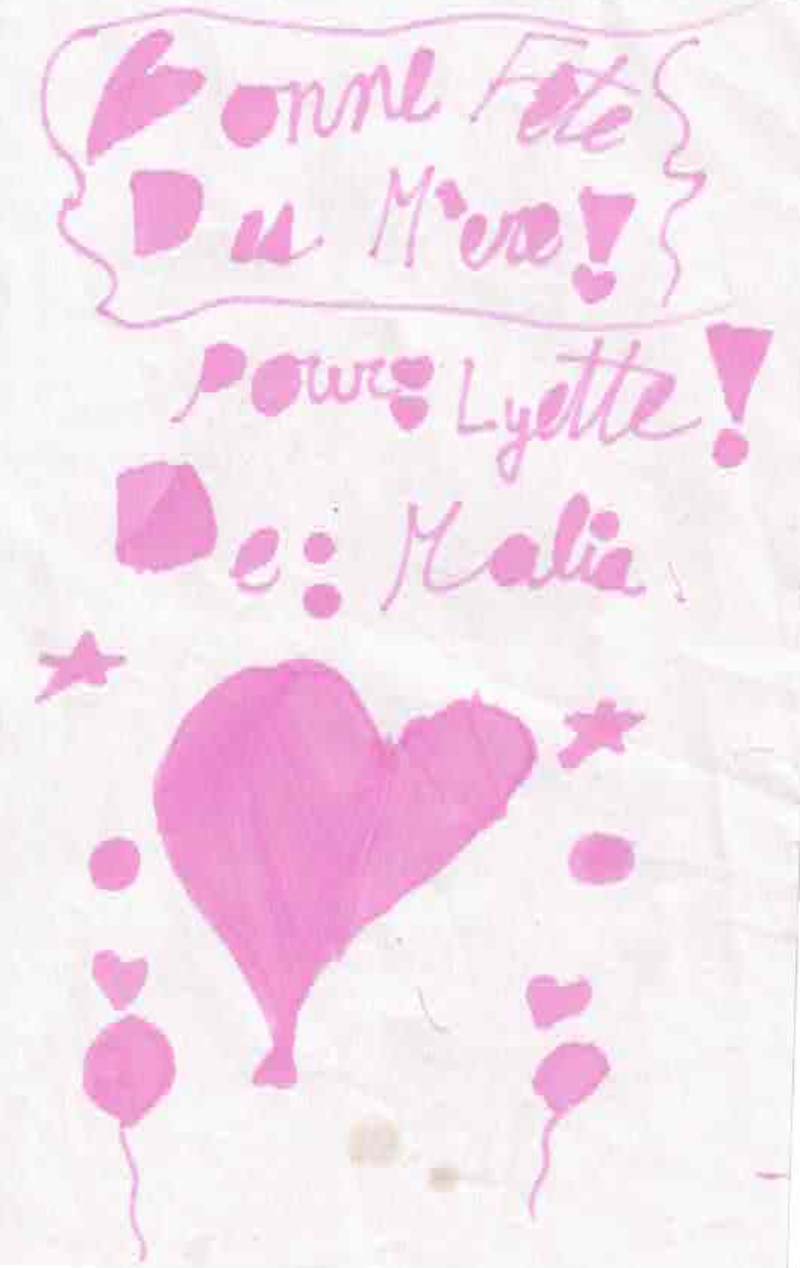 Bonne Fête
Du M'ere!
Pour: Lyette!
De: Malia